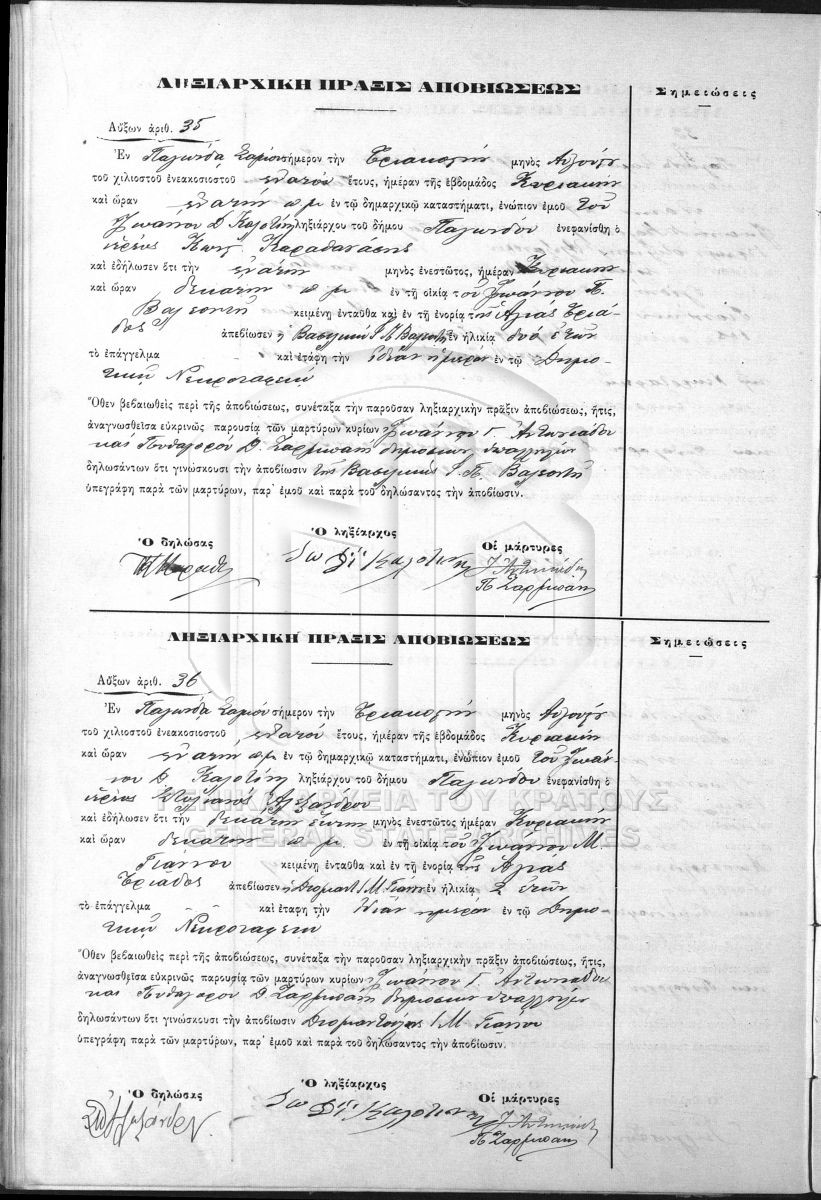 ΛΗΞΙΑΡΧΙΚΗ ΠΡΑΞΙΣ ΑΠΟΒΙΩΣΕΩΣ
Σημειώσεις
Αὔξων ἀριθ. 35
Ἐν Παγώνδα Σάμου σήμερον τὴν τριακοστήν μηνὸς Αὐγούστου
τοῦ χιλιοστοῦ ἐνεακοσιοστοῦ ἔτους, ἡμέραν τῆς ἑβδομάδος Κυριακήν
καὶ ὥραν ἐνάτην π.μ. ἐν τῷ δημαρχικῷ καταστήματι, ἐνώπιον ἐμοῦ τοῦ
Ἰωάννου Δ. Καλοτίνη ληξιάρχου τοῦ δήμου Παγώνδου ἐνεφανίσθη ὁ
ἱερεὺς Καραθανάσης
καὶ ἐδήλωσεν ὅτι τὴν ἐνάτην μηνὸς ἐνεστῶτος, ἡμέραν Κυριακήν
καὶ ὥραν δεκάτην π.μ. ἐν τῇ οἰκίᾳ τοῦ Ἰωάννου Π.
Βαλεοντῆ κειμένῃ ἐνταῦθα καὶ ἐν τῇ ἐνορίᾳ τῆς Ἁγίας Τριά-
δος ἀπεβίωσεν ἡ Βασιλική Ι. Π. ἐν ἡλικίᾳ δύο ἐτῶν
τὸ ἐπάγγελμα καὶ ἐτάφη τὴν ἰδίαν ἡμέραν ἐν τῷ Δημο-
τικῷ Νεκροταφείῳ
Ὅθεν βεβαιωθεὶς περὶ τῆς ἀποβιώσεως, συνέταξα τὴν παροῦσαν ληξιαρχικὴν πρᾶξιν ἀποβιώσεως, ἥτις,
ἀναγνωσθεῖσα εὐκρινῶς παρουσίᾳ τῶν μαρτύρων κυρίων Ἰωάννου Γ. Ἀντωνιάδου
καὶ Πυθαγόρου Δ. Σαρμπάνη δημοσίων ὑπαλλήλων
δηλωσάντων ὅτι γινώσκουσι τὴν ἀποβίωσιν τῆς Βασιλικῆς Ι. Π. Βαλεοντῆ
ὑπεγράφη παρὰ τῶν μαρτύρων, παρ' ἐμοῦ καὶ παρὰ τοῦ δηλώσαντος τὴν ἀποβίωσιν.
Ὁ δηλώσας
Ὁ ληξίαρχος
Οἱ μάρτυρες
Ἰω Δ. Καλοτίνης
Ἰ. Ἀντωνιάδης
Π. Σαρμπάνης
ΛΗΞΙΑΡΧΙΚΗ ΠΡΑΞΙΣ ΑΠΟΒΙΩΣΕΩΣ
Σημειώσεις
Αὔξων ἀριθ. 36
Ἐν Παγώνδα Σάμου σήμερον τὴν τριακοστήν μηνὸς Αὐγούστου
τοῦ χιλιοστοῦ ἐνεακοσιοστοῦ ἔτους, ἡμέραν τῆς ἑβδομάδος Κυριακήν
καὶ ὥραν ἐνάτην π.μ. ἐν τῷ δημαρχικῷ καταστήματι, ἐνώπιον ἐμοῦ τοῦ Ἰωάν-
νου Δ. Καλοτίνη ληξιάρχου τοῦ δήμου Παγώνδου ἐνεφανίσθη ὁ
ἱερεὺς Στυλιανὸς Ἀλεξάνδρου
ΓΕΝΙΚΑ ΑΡΧΕΙΑ ΤΟΥ ΚΡΑΤΟΥΣ
καὶ ἐδήλωσεν ὅτι τὴν δεκάτην ἕκτην μηνὸς ἐνεστῶτος ἡμέραν Κυριακήν
GENERAL STATE ARCHIVES
καὶ ὥραν δεκάτην π.μ. ἐν τῇ οἰκίᾳ τοῦ Ἰωάννου Μ.
Γιάννου κειμένῃ ἐνταῦθα καὶ ἐν τῇ ἐνορίᾳ τῆς Ἁγίας
Τριάδος ἀπεβίωσεν ἡ Ι. Μ. Γιάννου ἐν ἡλικίᾳ 2 ἐτῶν
τὸ ἐπάγγελμα καὶ ἐτάφη τὴν ἰδίαν ἡμέραν ἐν τῷ Δημο-
τικῷ Νεκροταφείῳ
Ὅθεν βεβαιωθεὶς περὶ τῆς ἀποβιώσεως, συνέταξα τὴν παροῦσαν ληξιαρχικὴν πρᾶξιν ἀποβιώσεως, ἥτις,
ἀναγνωσθεῖσα εὐκρινῶς παρουσίᾳ τῶν μαρτύρων κυρίων Ἰωάννου Γ. Ἀντωνιάδου
καὶ Πυθαγόρου Δ. Σαρμπάνη δημοσίων ὑπαλλήλων
δηλωσάντων ὅτι γινώσκουσι τὴν ἀποβίωσιν Διαμαντούλας Ι. Μ. Γιάννου
ὑπεγράφη παρὰ τῶν μαρτύρων, παρ' ἐμοῦ καὶ παρὰ τοῦ δηλώσαντος τὴν ἀποβίωσιν.
Ὁ δηλώσας
Ὁ ληξίαρχος
Οἱ μάρτυρες
Ἰω Δ. Καλοτίνης
Ἰ. Ἀντωνιάδης
Π. Σαρμπάνης